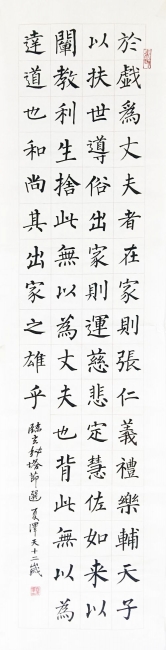 於戯爲丈夫者在家則張仁義禮樂輔天子
以扶世導俗出家則運慈悲定慧佐如来以
闡教利生捨此無以為丈夫也背此無以為
達道也和尚其出家之雄乎
臨玄秘塔節選夏澤天十二歲